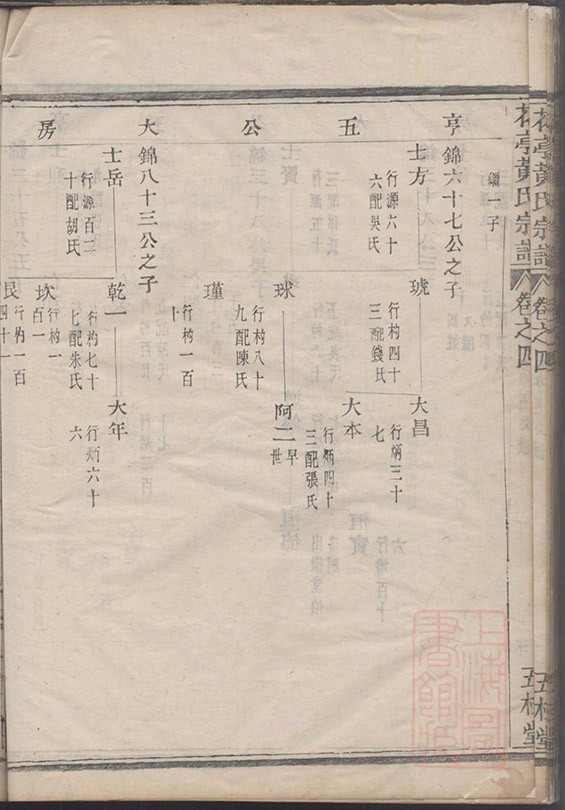 亨五公大房
繼一子
錦六十七公之子
士方
行源六十
六配吳氏
琥
行杓四十
三配錢氏
大昌
行炳三十
七
大本
行炳四十
三配張氏
球
行杓八十
九配陳氏
阿二
早
世
瑾
行杓一百
十
錦八十三公之子
士岳
行源百二
十配胡氏
乾一
行杓七十
七配朱氏
大年
行炳六十
六
坎
行杓一
百一
艮
行杓一百
四十一
黃氏宗譜
卷之四
上海圖
書館藏